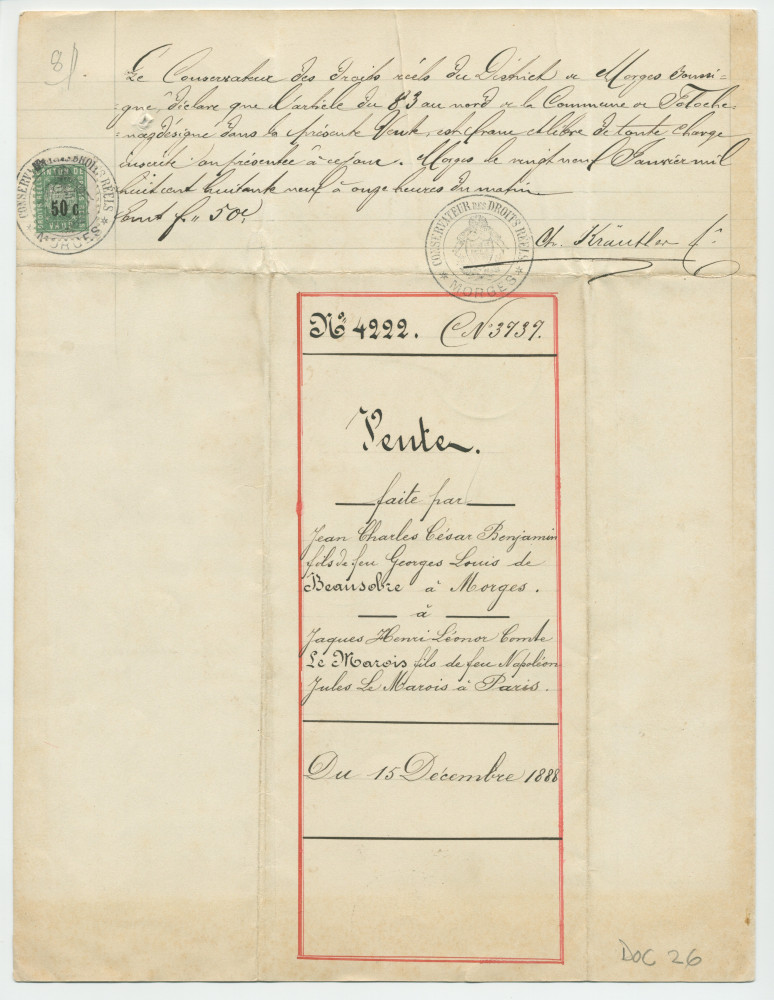 8/.
Le Conservateur des Droits réels du District de Morges soussi-
gné, déclare que l'article du 83 au nord de la Commune de Toloche-
naz désigné dans la présente Vente, est franc et libre de toute charge
inscrite ou présentée à ce jour. Morges le vingt neuf Janvier mil
huit cent huitante neuf à onze heures du matin
Emt f. " 50c.
CONSERVATEUR DES DROITS RÉELS
CANTON DE
50 c
VAUD
* MORGES *
CONSERVATEUR DES DROITS RÉELS
* MORGES *
Ch. Kräutler
No 4222. CN 3737.
Vente.
faite par
Jean Charles César Benjamin
fils de feu Georges Louis de
Beausobre à Morges.
à
Jaques Henri Léonor Comte
Le Marois fils de feu Napoléon
Jules Le Marois à Paris.
Du 15 Décembre 1888
DOC 26